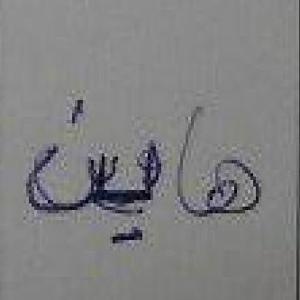 هاين